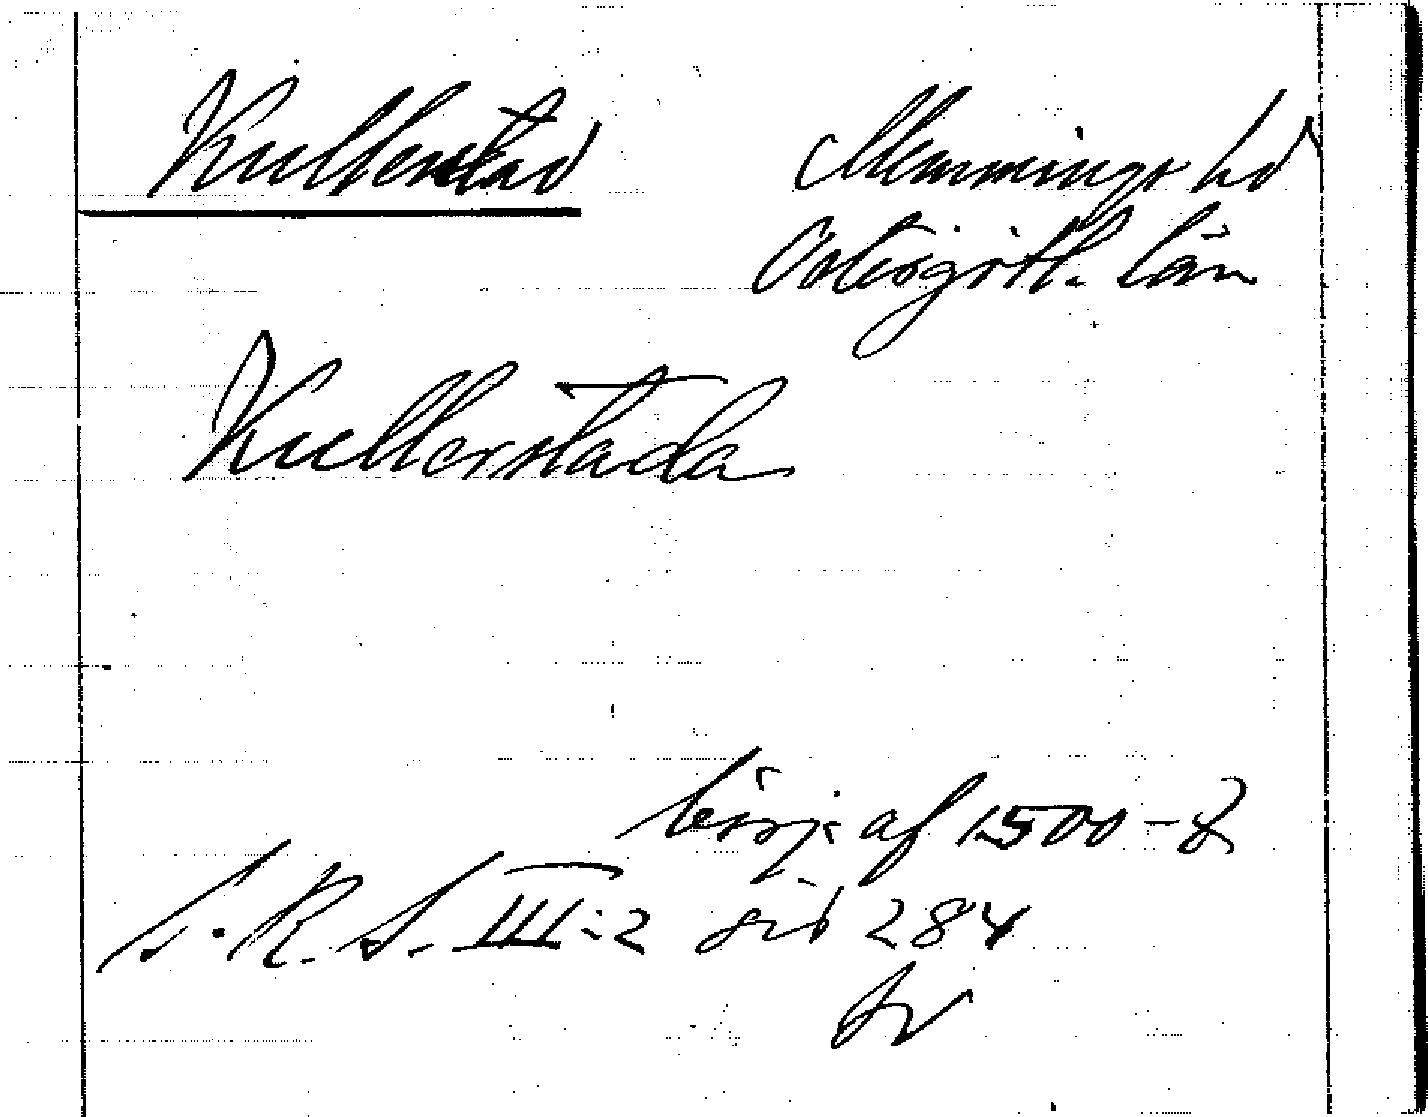 Kullerstad Memmings hd
Östergötl. län
Kullerstada
börj. af 1500-t
S. R. S. III:2 sid 284